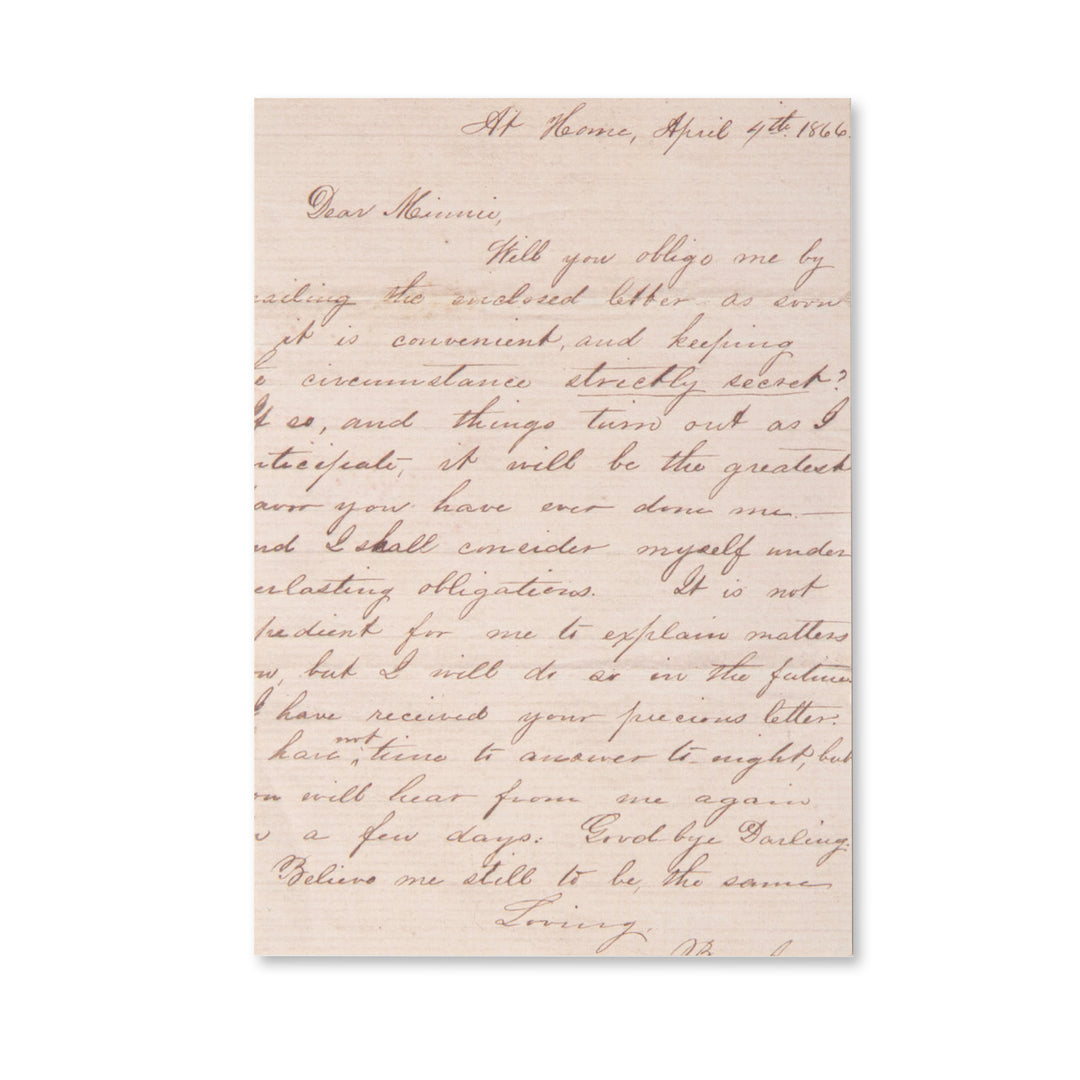 At Home, April 4th. 1866.
Dear Minnie,
Will you oblige me by
ailing the enclosed letter as soon
it is convenient, and keeping
e circumstance strictly secret?
If so, and things turn out as I
nticipate, it will be the greatest
avor you have ever done me.—
nd I shall consider myself under
erlasting obligations. It is not
pedient for me to explain matters
ow, but I will do so in the future
I have received your precious letter.
have not time to answer to-night, but
ou will hear from me again
n a few days: Good-bye Darling.
Believe me still to be, the same
Loving,